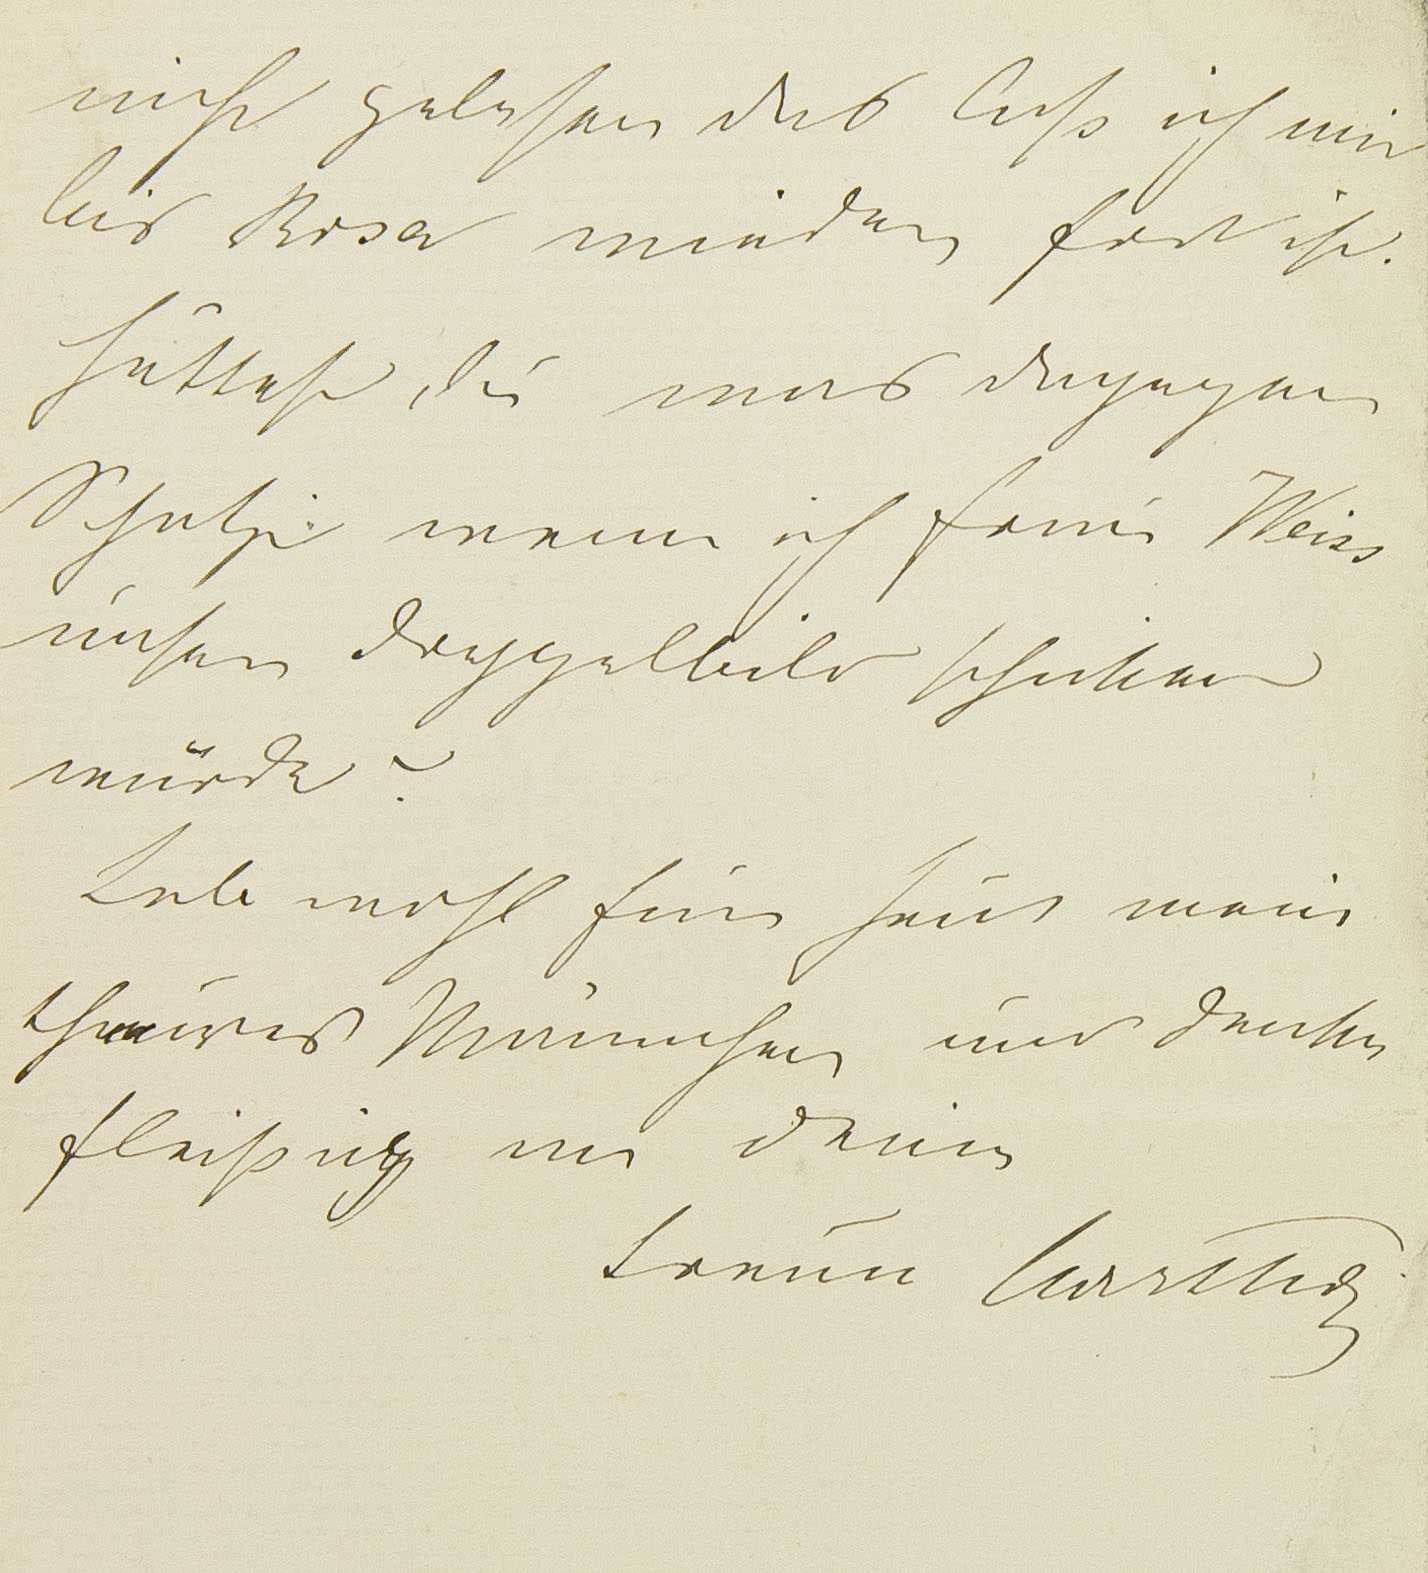 nicht gelesen das lass ich mir
bis Rosa wieder fort ist.
Hättest du was dagegen
Schatzi wenn ich Frau Weiss
unser Doppelbild schicken
würde?
Lebe wohl für heut mein
theures Männchen und denke
fleißig an deine
treue